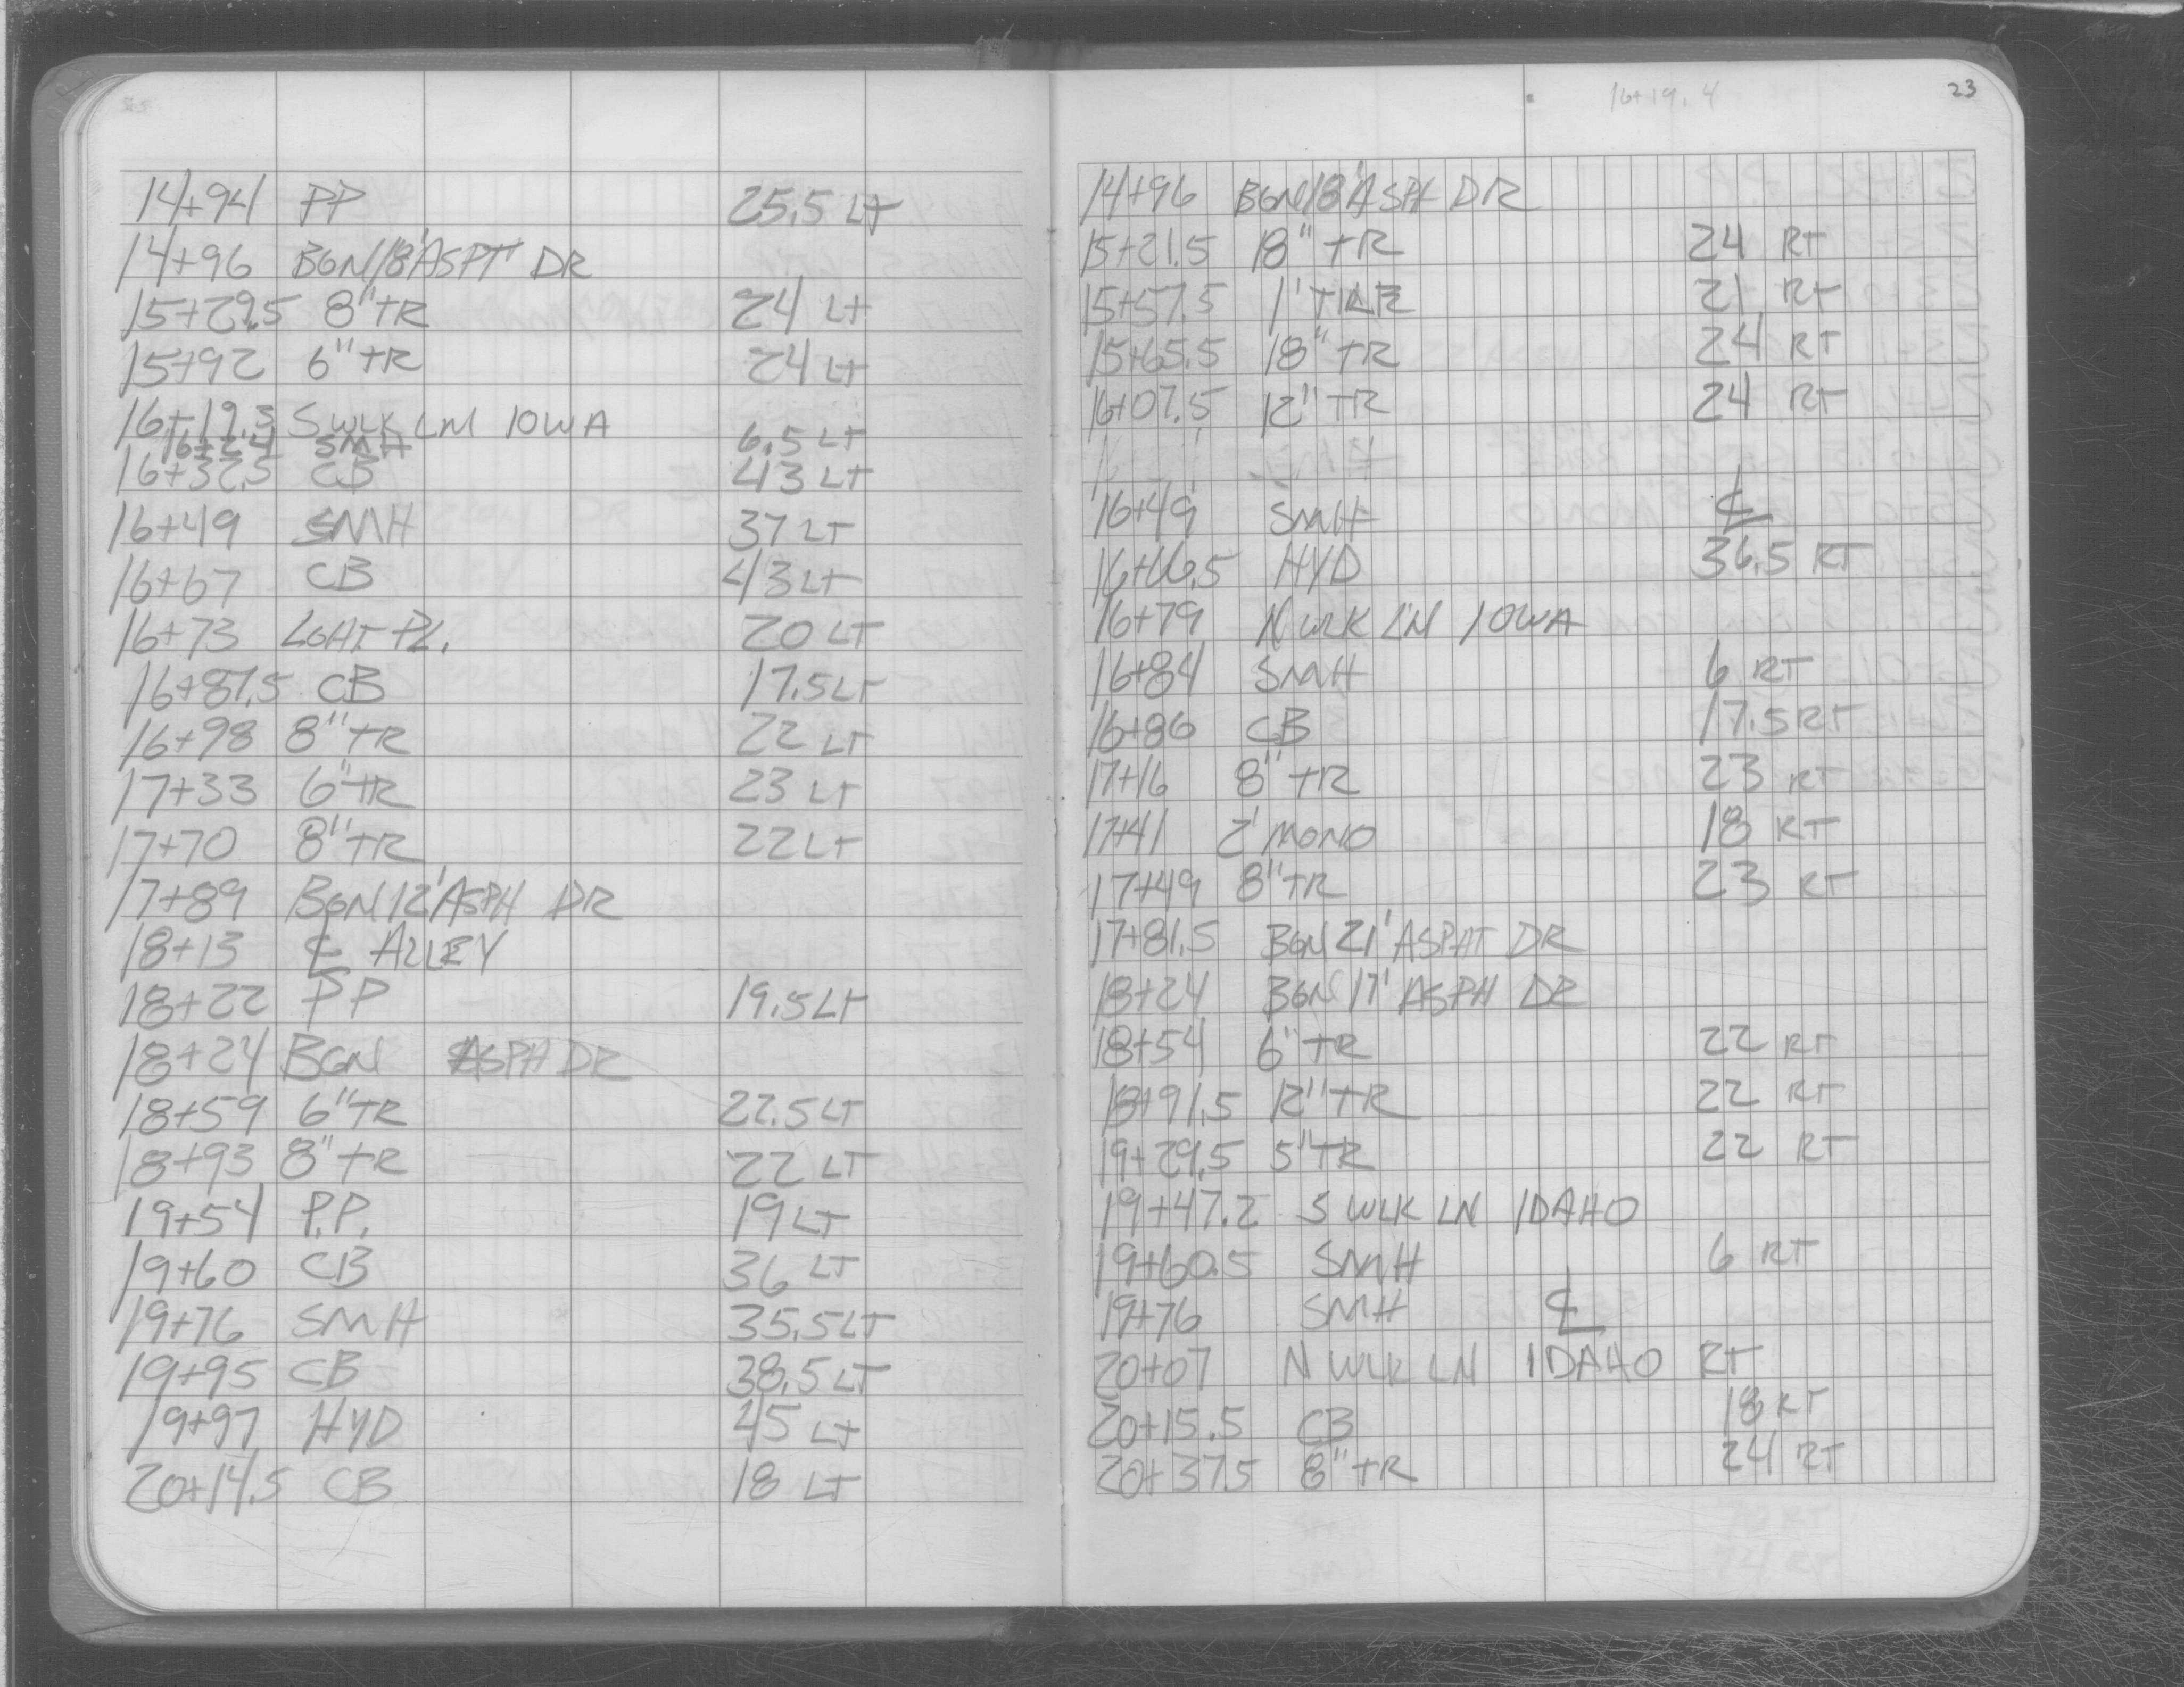 14+94 PP 25.5 LT
14+96 BGN 18' ASPT DR
15+29.5 8" TR 24 LT
15+92 6" TR 24 LT
16+19.3 S WLK LN IOWA
16+24 SMH 6.5 LT
16+32.5 CB 43 LT
16+49 SMH 37 LT
16+67 CB 43 LT
16+73 LGHT PL. 20 LT
16+87.5 CB 17.5 LT
16+98 8" TR 22 LT
17+33 6" TR 23 LT
17+70 8" TR 22 LT
17+89 BGN 12' ASPH DR
18+13 ℄ ALLEY
18+22 PP 19.5 LT
18+24 BGN ASPH DR
18+59 6" TR 22.5 LT
18+93 8" TR 22 LT
19+54 P.P. 19 LT
19+60 CB 36 LT
19+76 SMH 35.5 LT
19+95 CB 38.5 LT
19+97 HYD 45 LT
20+14.5 CB 18 LT
16+19.4
23
14+96 BGN 18' ASPH DR
15+21.5 18" TR 24 RT
15+57.5 1' 21 RT
15+65.5 18" TR 24 RT
16+07.5 12" TR 24 RT
16+49 SMH ℄
16+66.5 HYD 36.5 RT
16+79 N WLK LN IOWA
16+84 SMH 6 RT
16+86 CB 17.5 RT
17+16 8" TR 23 RT
17+41 2' MONO 18 RT
17+49 8" TR 23 RT
17+81.5 BGN 21' ASPHT DR
18+24 BGN 17' ASPH DR
18+54 6" TR 22 RT
18+91.5 12" TR 22 RT
19+29.5 5" TR 22 RT
19+47.2 S WLK LN IDAHO
19+60.5 SMH 6 RT
19+76 SMH ℄
20+07 N WLK LN IDAHO RT
20+15.5 CB 18 RT
20+37.5 8" TR 24 RT